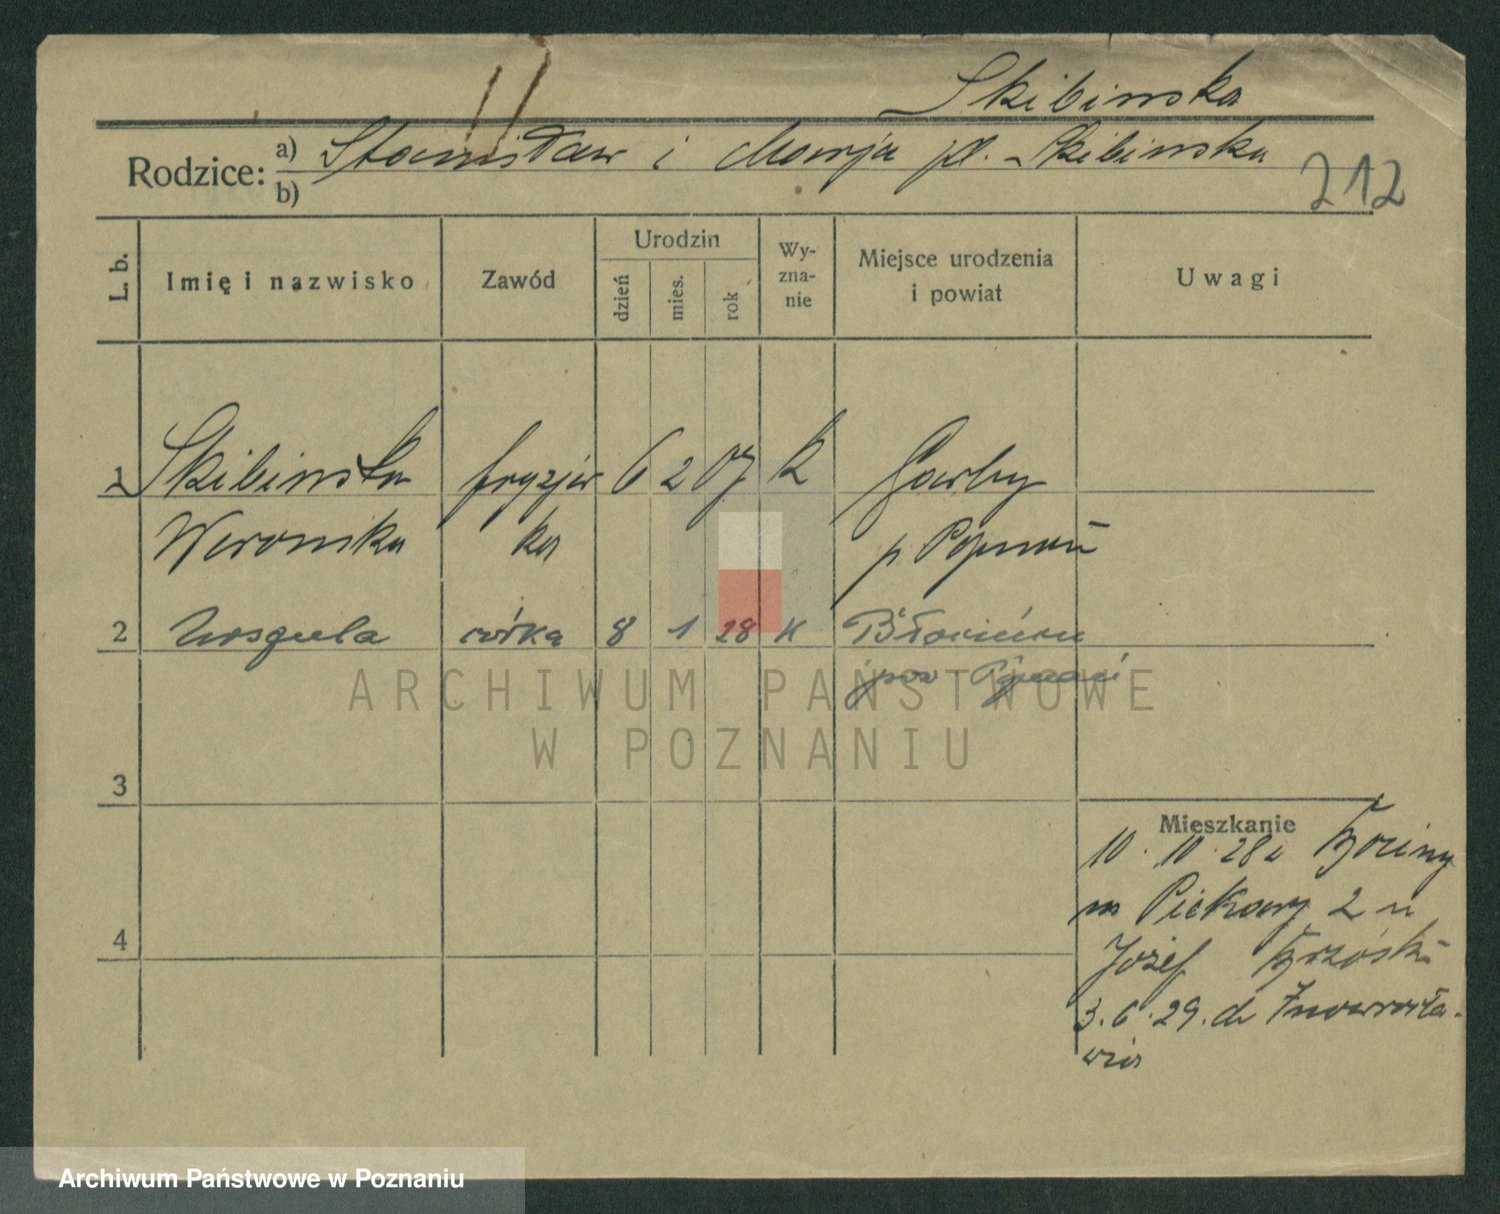 Skibinska
Rodzice: a) Stanisław i Marja pł. Skibinska
b)
212
L. b.
Imię i nazwisko
Zawód
Urodzin
dzień
mies.
rok
Wy-
zna-
nie
Miejsce urodzenia
i powiat
Uwagi
1 Skibinska fryzjer 6 2 07 k Garby
Weronika ka p Poznań
2 Urszula córka 8 1 28 k
pow Poznań
3
Mieszkanie
10.10.28 z
m Piekary 2 u
4
Józef
3.6.29. do Inowrocła-
wia
ARCHIWUM PAŃSTWOWE
W POZNANIU
Archiwum Państwowe w Poznaniu